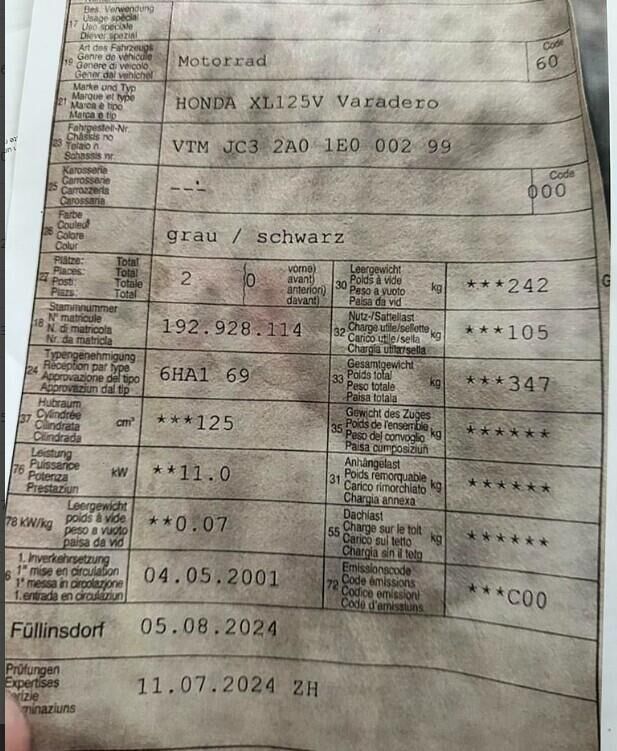 Bes. Verwendung
Usage spécial
17 Uso speciale
Diever spezial
Art des Fahrzeugs
Genre de véhicule
19 Genere di veicolo
Gener dal vehichel
Motorrad
Code
60
Marke und Typ
Marque et type
21 Marca e tipo
Marca e tip
HONDA XL125V Varadero
Fahrgestell-Nr.
Châssis no
23 Telaio n.
Schassis nr.
VTM JC3 2A0 1E0 002 99
Karosserie
Carrosserie
25 Carrozzeria
Carossaria
---
Code
000
Farbe
Couleur
26 Colore
Colur
grau / schwarz
Plätze: Total
Places: Total
27 Posti: Totale
Plazs: Total
2
0
vorne)
avant)
anteriori)
davant)
Leergewicht
30 Poids à vide kg
Peso a vuoto
Paisa da vid
***242
Stammnummer
18 N° matricule
N. di matricola
Nr. da matricla
192.928.114
Nutz-/Sattellast
32 Charge utile/sellette kg
Carico utile/sella
Chargia utila/sella
***105
Typengenehmigung
24 Réception par type
Approvazione del tipo
Approvaziun dal tip
6HA1 69
Gesamtgewicht
33 Poids total kg
Peso totale
Paisa totala
***347
Hubraum
37 Cylindrée cm³
Cilindrata
Cilindrada
***125
Gewicht des Zuges
35 Poids de l'ensemble kg
Peso del convoglio
Paisa cumposiziun
******
Leistung
76 Puissance kW
Potenza
Prestaziun
**11.0
Anhängelast
31 Poids remorquable kg
Carico rimorchiato
Chargia annexa
******
Leergewicht
78 kW/kg poids à vide
peso a vuoto
paisa da vid
**0.07
Dachlast
55 Charge sur le toit kg
Carico sul tetto
Chargia sin il tetg
******
1. Inverkehrsetzung
6 1re mise en circulation
1a messa in circolazione
1. entrada en circulaziun
04.05.2001
Emissionscode
72 Code émissions
Codice emissioni
Code d'emissiuns
***C00
Füllinsdorf 05.08.2024
Prüfungen
Expertises
minaziuns
11.07.2024 ZH
G